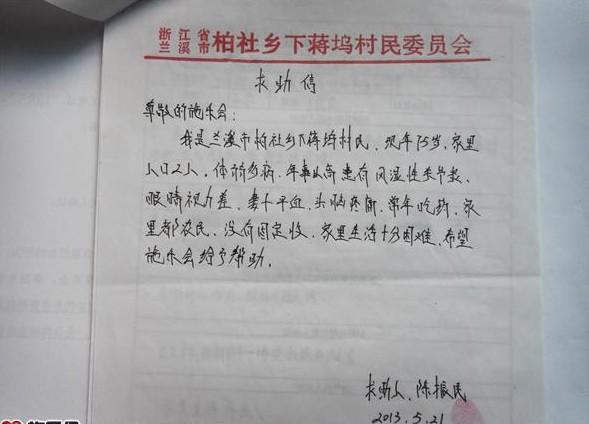 浙江省兰溪市柏社乡下蒋坞村民委员会
求助信
尊敬的施乐会:
我是兰溪市柏社乡下蒋坞村民、现年75岁、家里
人口2人、体弱多病、年事以高患有风湿性关节炎、
眼睛视力差、妻子干血、头脑疼痛、常年吃药、家
里都农民、没有固定收、家里生活十分困难、希望
施乐会给予帮助。
求助人、陈振民
2013.5.21